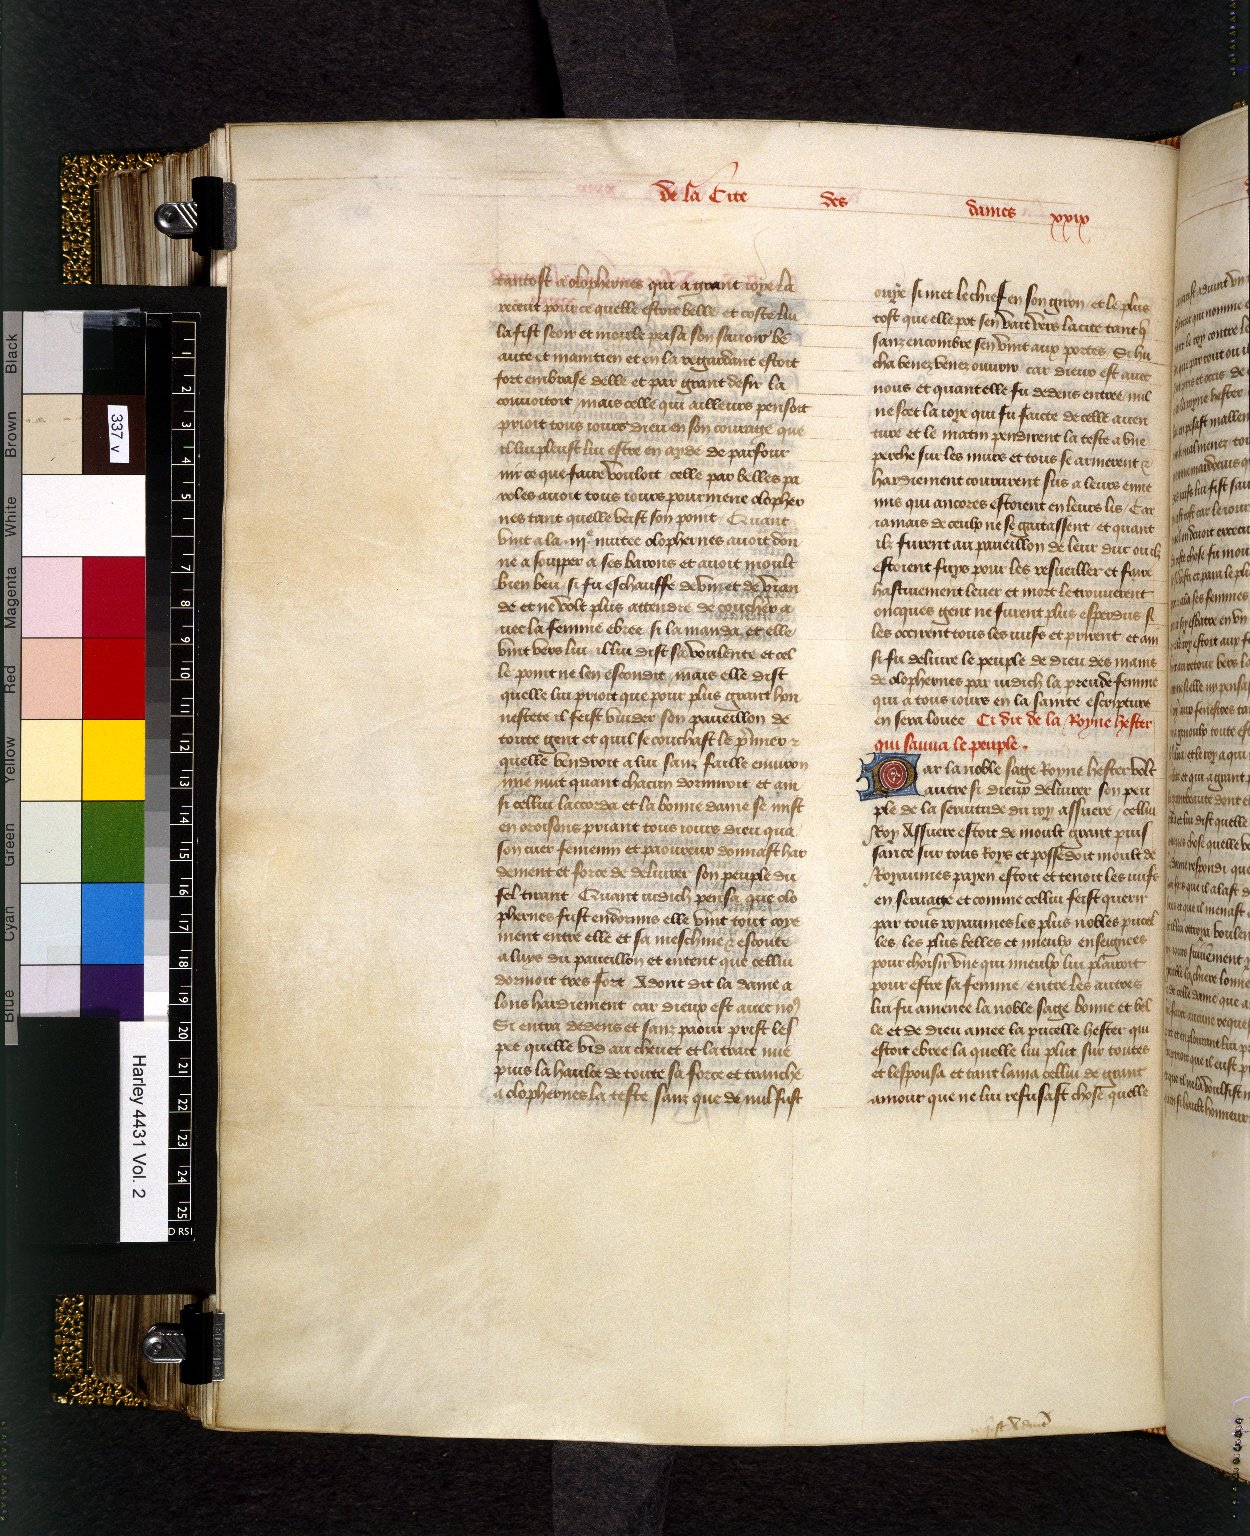 de la Cite des dames xxix
tantost a olophernes qui a grant ioye la
receut pour ce quelle estoit belle et coste lui
la fist seoir et merele prisa son sauoir be
aute et maintien et en la regardant estoit
fort embrase delle et par grant desir la
couuoitoit mais celle qui ailleurs pensoit
prioit tous iours dieu en son courage que
il lui pleust lui estre en ayde de parfour
nir ce que faire vouloit celle par belles pa
roles auoit tous iours pourmene olopher
nes tant quelle veist son point Quant
vint a la .iiie nuitee olophernes auoit don
ne a soupper a ses barons et auoit moult
bien beu si fu eschauffe de vin et de vian
de et ne volt plus attendre de couchier a
uec la femme ebree si la manda et elle
vint vers lui il lui dist sa voulente et cel
le point ne len escondit mais elle dist
quelle lui prioit que pour plus grant hon
nestete il feist vuider son paueillon de
toute gent et quil se couchast le premier z
quelle vendroit a lui sanz faille enuiron
mie nuit quant chacun dormiroit et ain
si cellui laccorda et la bonne dame se mist
en oroisons priant tous iours dieu qua
son cuer femenin et paoureux donnast har
dement et force de deliurer son peuple du
fel tirant Quant iudich pensa que olo
phernes fust endormis elle vint tout coye
ment entre elle et sa meschine z escoute
a luys du paueillon et entent que cellui
dormoit tres fort Adont dit la dame a
lons hardiement car dieux est auec nos
Si entra dedens et sanz paour prist les
pee quelle vid au cheuet et la trait nue
puis la haulce de toute sa force et tranche
a olophernes la teste sanz que de nul fust
ouye si met le chief en son giron et le plus
tost que elle pot sen vait vers la cite tant q
sanz encombre sen vint aux portes Si hu
cha venez venez ouurir car dieux est auec
nous et quant elle fu dedens entree nul
ne scet la ioye qui fu faicte de celle auen
ture et le matin pendirent la teste a vne
perche sur les murs et tous se armerent z
hardiement coururent sus a leurs enne
mis qui ancores estoient en leurs lis Car
iamais de ceulx ne se gaitassent et quant
ilz furent au paueillon de leur duc ou ilz
estoient fuys pour les resueiller et faire
hastiuement leuer et mort le trouuerent
oncques gent ne furent plus esperdus si
les occirent tous les iuifs et prirent et ain
si fu deliure le peuple de dieu des mains
de olophernes par iudich la preude femme
qui a tous iours en la sainte escripture
en sera louee Ci dit de la Royne hester
qui sauua le peuple .
Par la noble sage Royne hester volt
autre si dieux deliurer son peu
ple de la seruitude du roy assuere cellui
Roy Assuere estoit de moult grant puis
sance sur tous Roys et possedoit moult de
Royaumes payen estoit et tenoit les iuifs
en seruage et comme cellui feist querir
par tous royaumes les plus nobles pucel
les les plus belles et mieulx enseignees
pour choisir vne qui mieulx lui plairoit
pour estre sa femme entre les autres
lui fu amenee la noble sage bonne et bel
le et de dieu amee la pucelle hester qui
estoit ebree la quelle lui plut sur toutes
et lespousa et tant lama cellui de grant
amour que ne lui refusast chose quelle
337 v
Harley 4431 Vol. 2
Black
Brown
White
Magenta
Red
Yellow
Green
Cyan
Blue
1
2
3
4
5
6
7
8
9
10
11
12
13
14
15
16
17
18
19
20
21
22
23
24
25